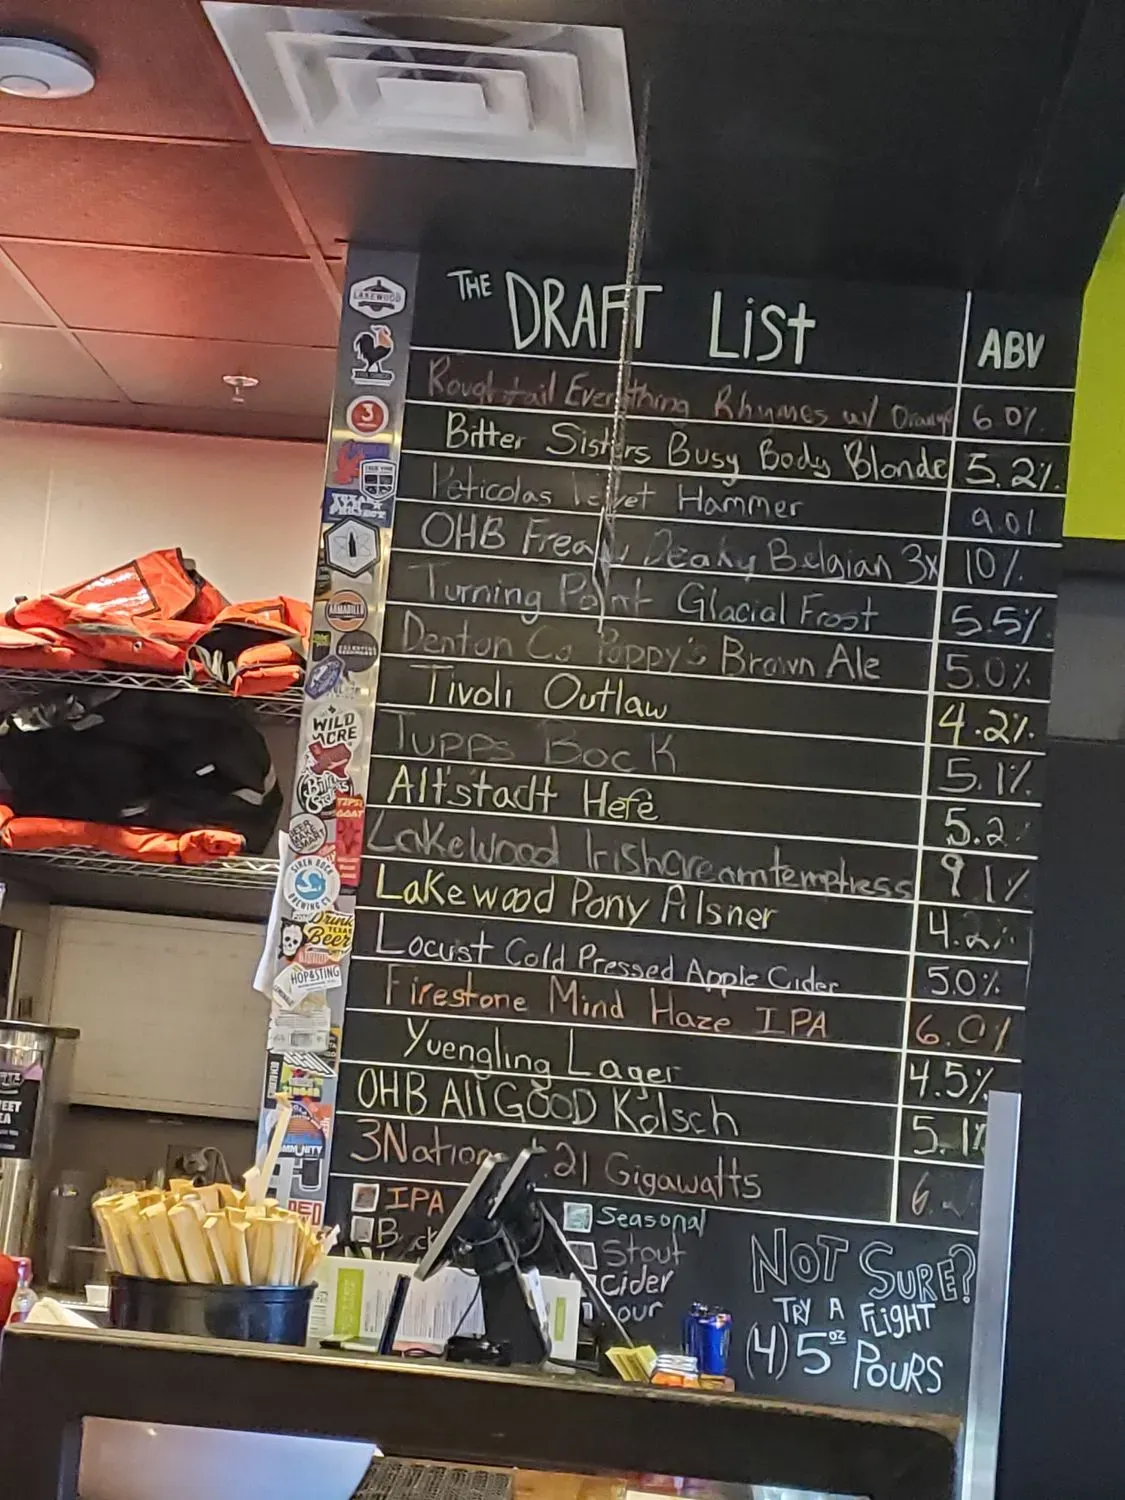 THE DRAFT List ABV
Roughtail Everything Rhymes w/ Orange 6.0%
Bitter Sisters Busy Body Blonde 5.2%
Peticolas Velvet Hammer 9.0%
OHB Freaky Deaky Belgian 3x 10%
Turning Point Glacial Frost 5.5%
Denton Co Poppy's Brown Ale 5.0%
Tivoli Outlaw 4.2%
Tupps Bock 5.1%
Alt'stadt Hefe 5.2
Lakewood Irishcreamtemptress 9.1%
Lakewood Pony Pilsner 4.2%
Locust Cold Pressed Apple Cider 5.0%
Firestone Mind Haze IPA 6.0%
Yuengling Lager 4.5%
OHB All GOOD Kolsch 5.1%
3Nations 21 Gigawatts 6.
IPA
Seasonal
Stout
Cider
NOT SURE?
TRY A FLIGHT
(4) 5oz POURS
LAKEWOOD
3
ARMADILLO
WILD ACRE
Bitter Sisters
SIREN ROCK BREWING CO
Drink TEXAS Beer
HOP & STING